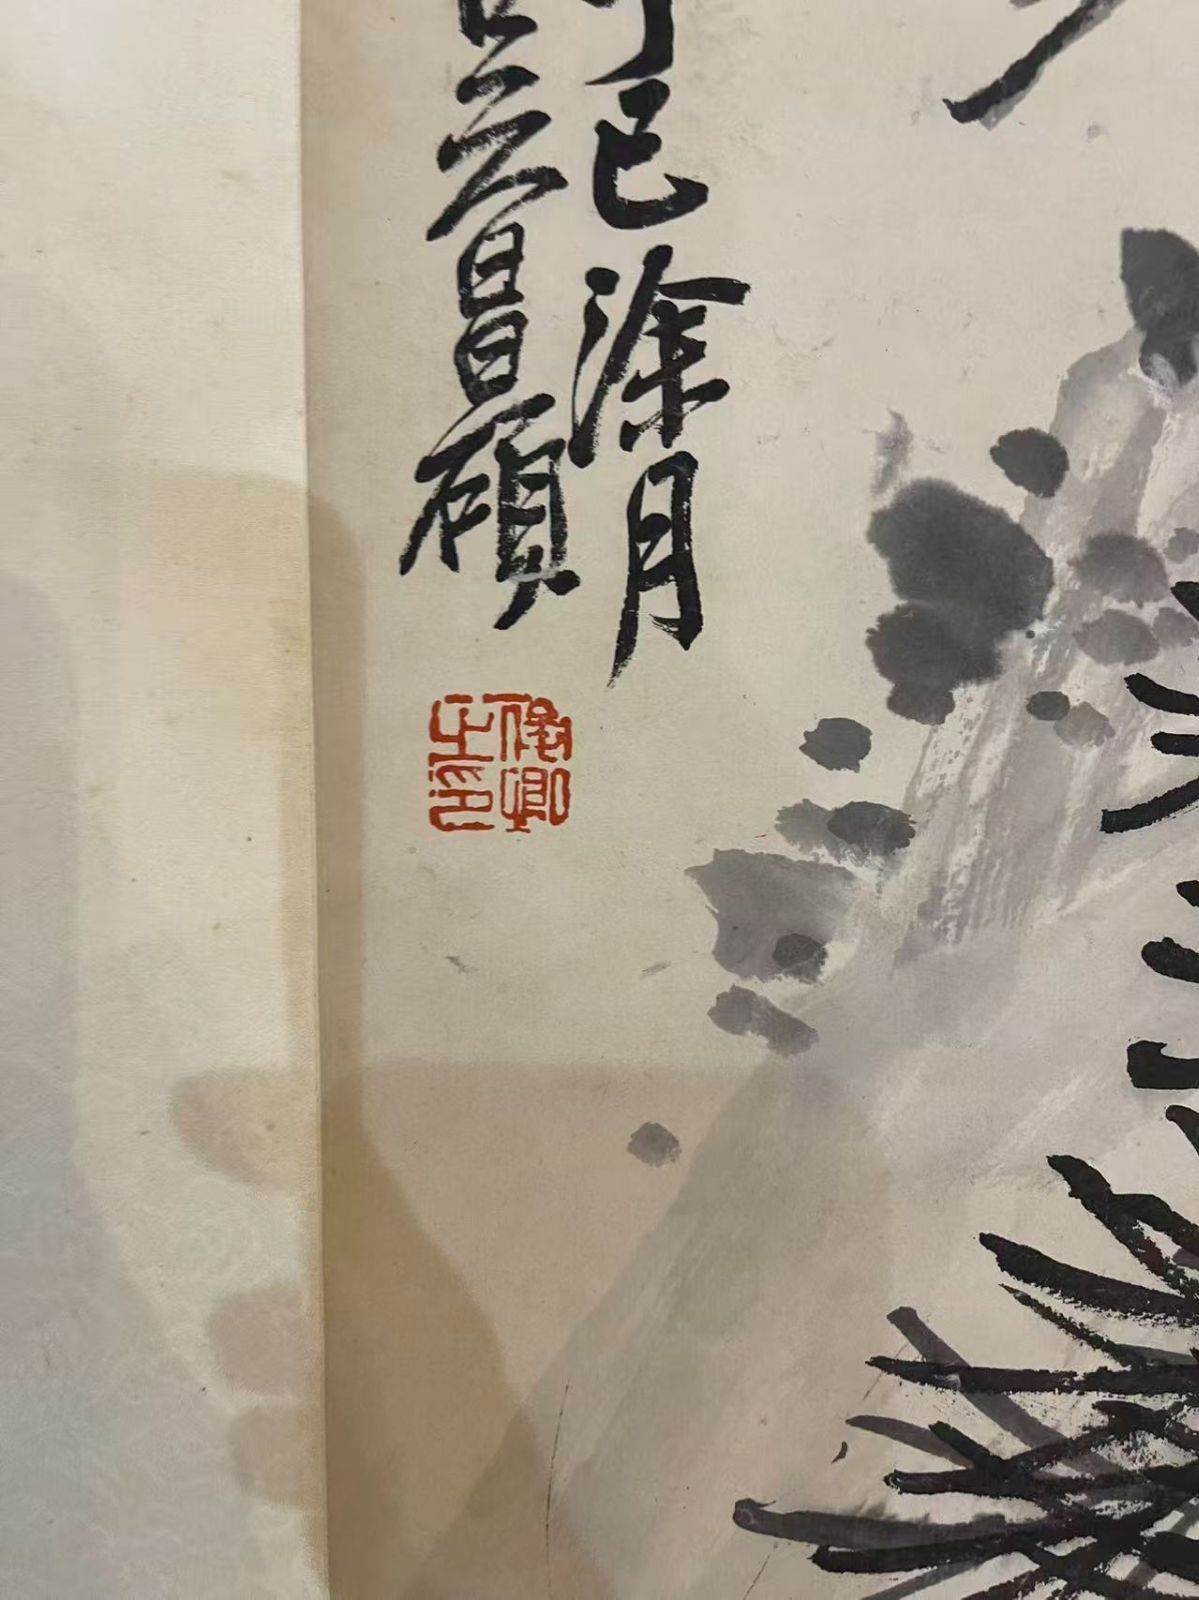 巳涂月
昌碩
俊卿之印